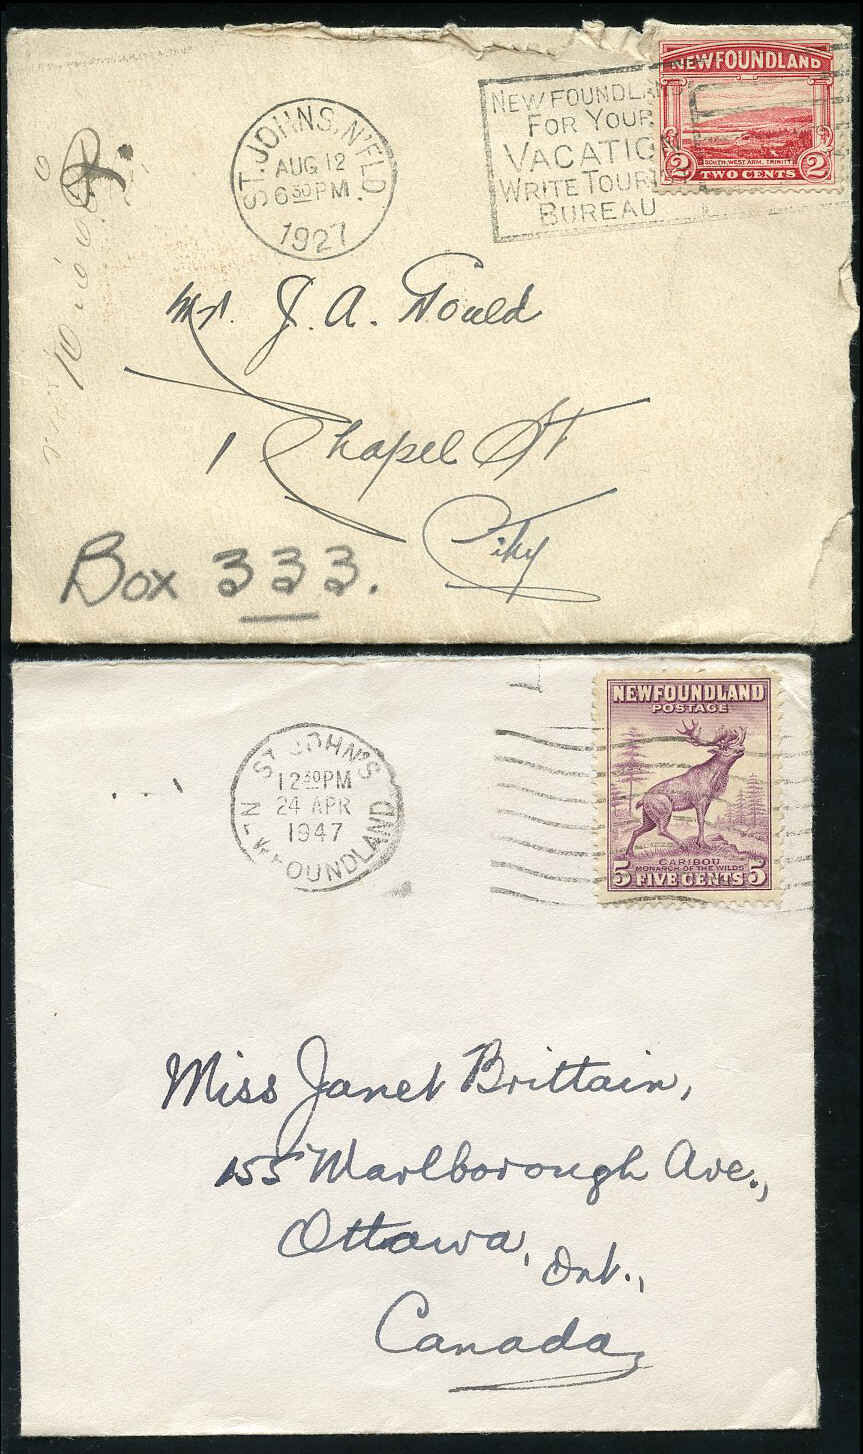 ST. JOHNS, N'FLD.
AUG 12
6 30 PM
1927
NEWFOUNDLAND
FOR YOUR
VACATIO
WRITE TOURIST
BUREAU
NEWFOUNDLAND
SOUTH WEST ARM, TRINITY
2 TWO CENTS 2
Mr. J. A. Gould
1 Chapel St
City
Box 333.
ST JOHN'S
12 30 PM
24 APR
1947
NEWFOUNDLAND
NEWFOUNDLAND
POSTAGE
CARIBOU
MONARCH OF THE WILDS
5 FIVE CENTS 5
Miss Janet Brittain,
155 Marlborough Ave.,
Ottawa, Ont.,
Canada